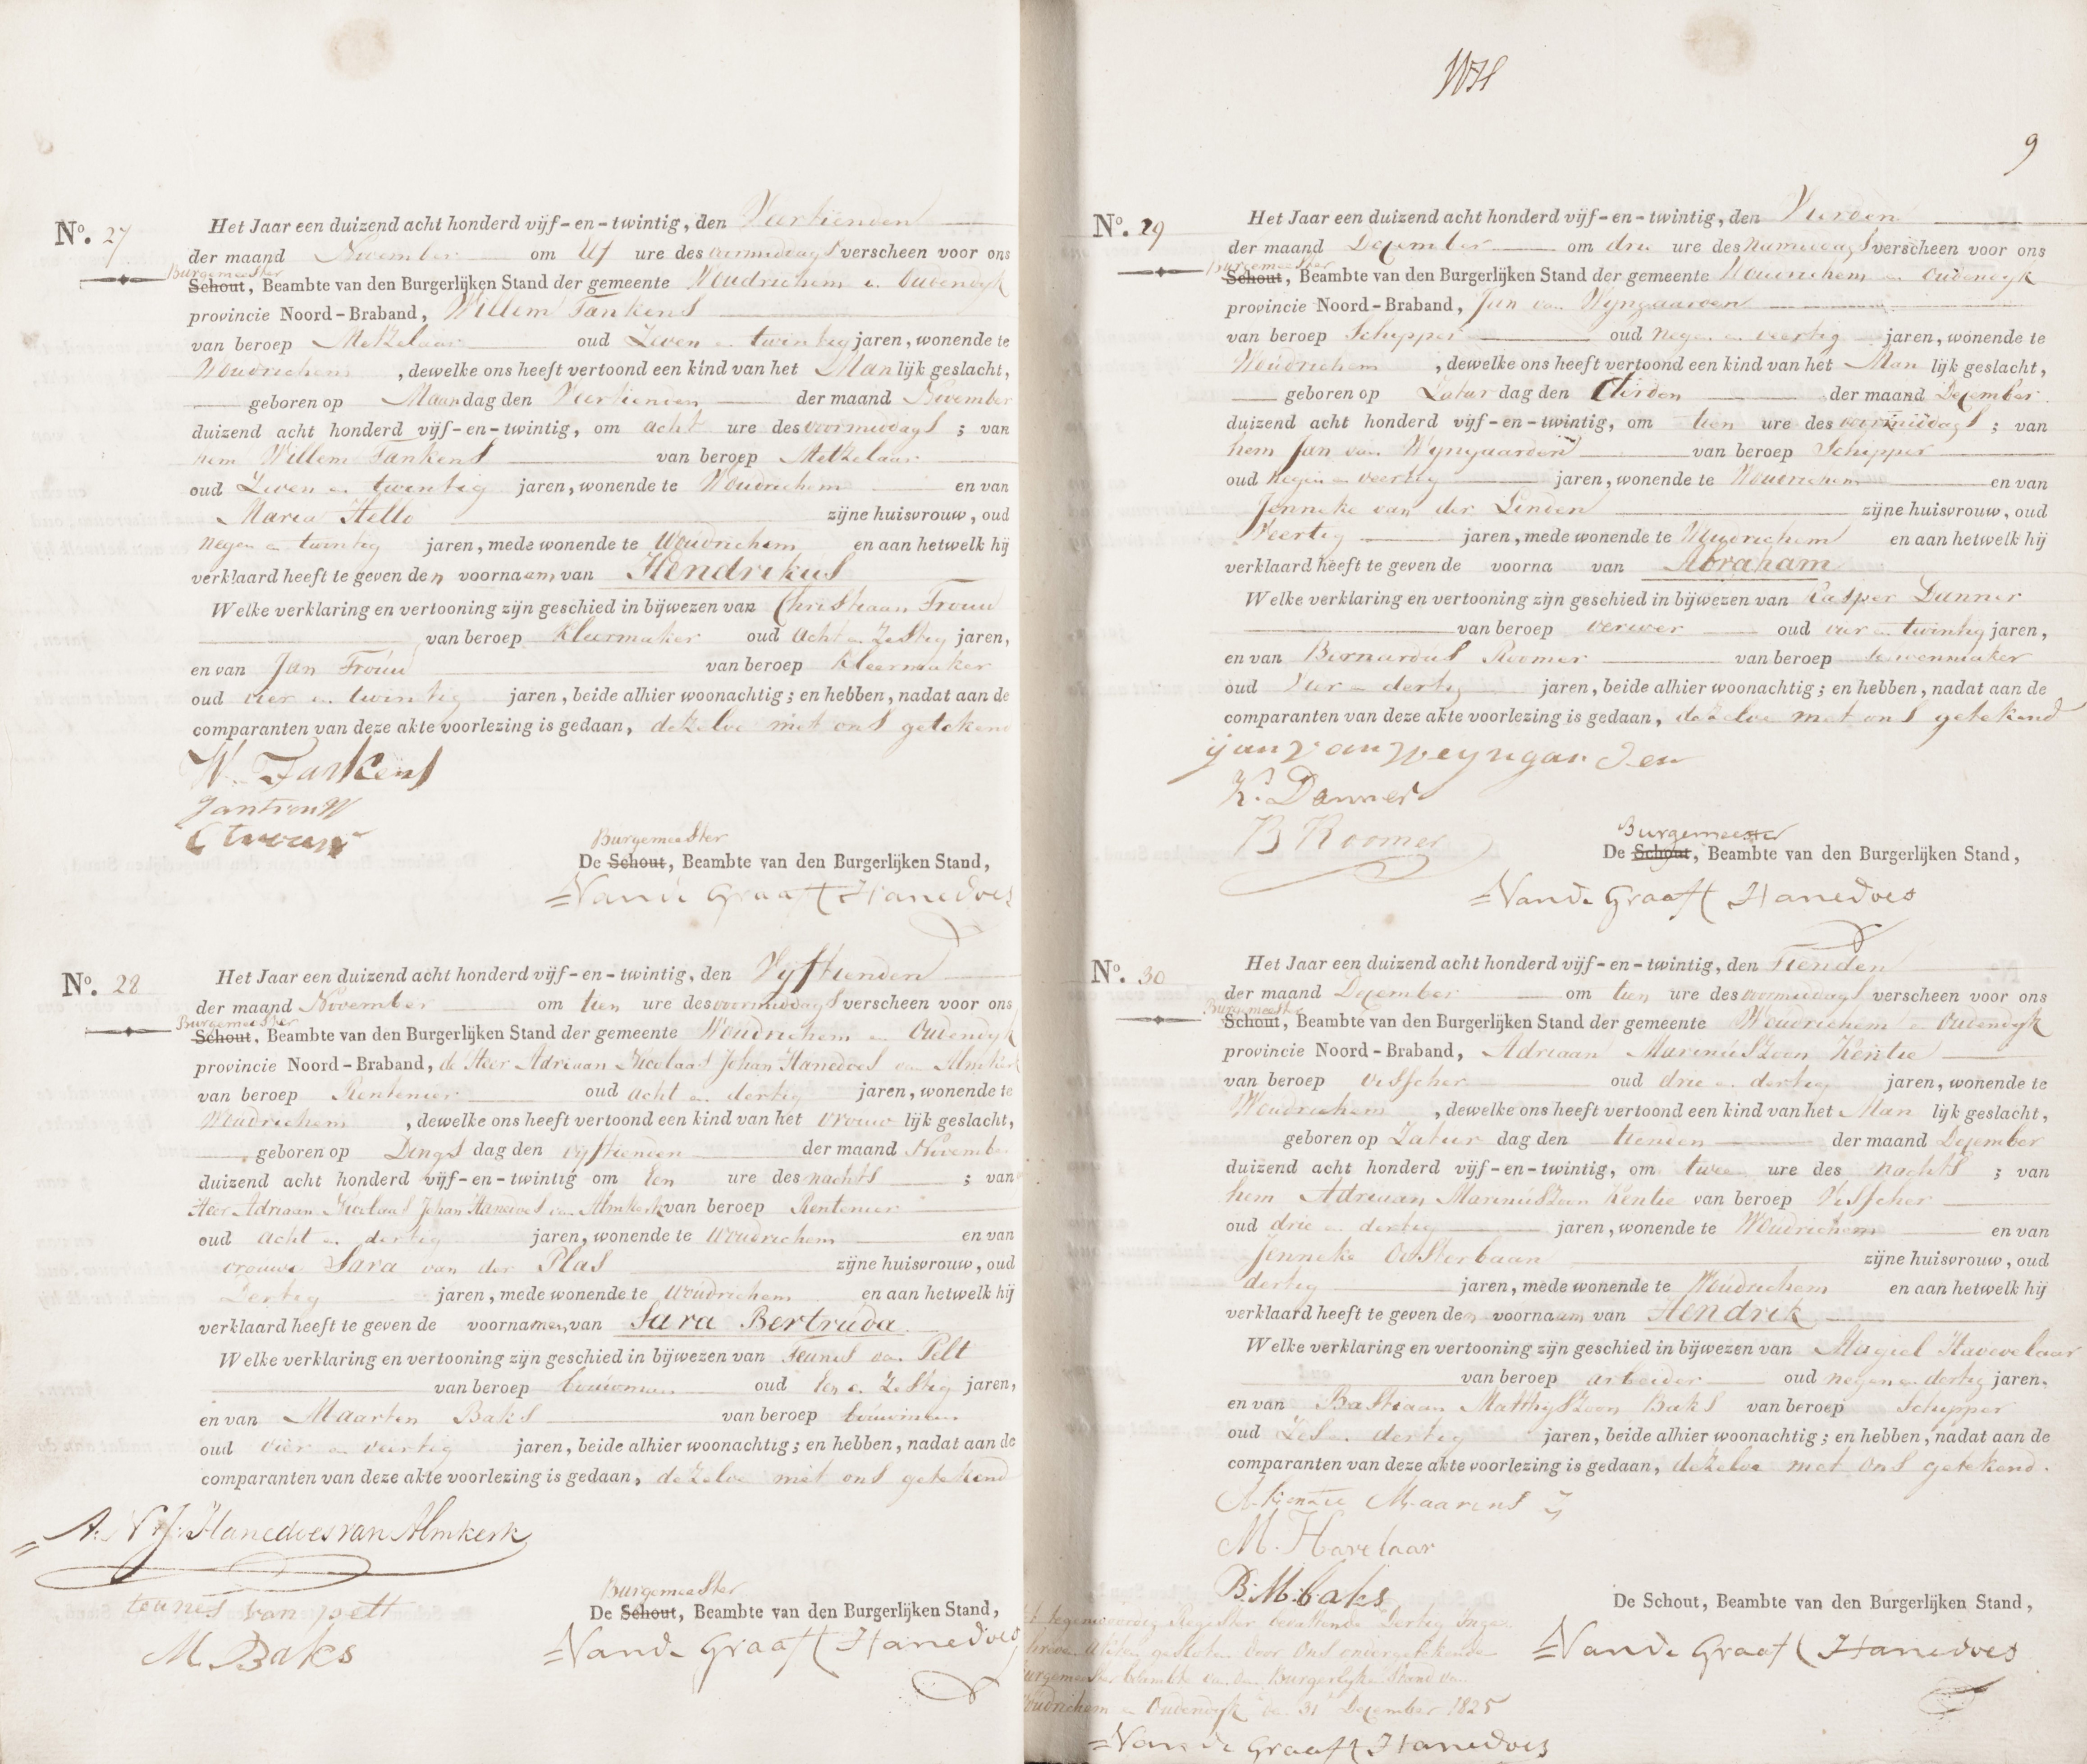 No. 27
Het Jaar een duizend acht honderd vijf-en-twintig, den Veertienden
der maand November om Elf ure des voormiddags verscheen voor ons
Burgemeester
Schout, Beambte van den Burgerlijken Stand der gemeente Woudrichem en Oudendyk
provincie Noord-Braband, Willem Tankens
van beroep Metzelaar oud Zeven en twintig jaren, wonende te
Woudrichem, dewelke ons heeft vertoond een kind van het Manlijk geslacht,
geboren op Maandag den Veertienden der maand November
duizend acht honderd vijf-en-twintig, om acht ure des voormiddags; van
hem Willem Tankens van beroep Metzelaar
oud Zeven en twintig jaren, wonende te Woudrichem en van
Maria Hello zijne huisvrouw, oud
negen en twintig jaren, mede wonende te Woudrichem en aan hetwelk hij
verklaard heeft te geven den voornaam van Hendrikus
Welke verklaring en vertooning zijn geschied in bijwezen van Christiaan Trouw
van beroep Kleermaker oud acht en Zestig jaren,
en van Jan Trouw van beroep Kleermaker
oud vier en twintig jaren, beide alhier woonachtig; en hebben, nadat aan de
comparanten van deze akte voorlezing is gedaan, dezelve met ons getekend
W. Tankens
Jan trouW
C trouw
Burgemeester
De Schout, Beambte van den Burgerlijken Stand,
Van de Graaff Hanedoes
No. 28
Het Jaar een duizend acht honderd vijf-en-twintig, den Vyftienden
der maand November om tien ure des voormiddags verscheen voor ons
Burgemeester
Schout, Beambte van den Burgerlijken Stand der gemeente Woudrichem en Oudendyk
provincie Noord-Braband, de Heer Adriaan Nicolaas Johan Hanedoes van Almkerk
van beroep Rentenier oud acht en dertig jaren, wonende te
Woudrichem, dewelke ons heeft vertoond een kind van het vrouwlijk geslacht,
geboren op Dingsdag den vyftienden der maand November
duizend acht honderd vijf-en-twintig om een ure des nachts; van
Heer Adriaan Nicolaas Johan Hanedoes van Almkerk van beroep Rentenier
oud acht en dertig jaren, wonende te Woudrichem en van
vrouwe Sara van der Plas zijne huisvrouw, oud
Dertig jaren, mede wonende te Woudrichem en aan hetwelk hij
verklaard heeft te geven de voornamen van Sara Bertruda
Welke verklaring en vertooning zijn geschied in bijwezen van Teunis van Pelt
van beroep bouwman oud een en Zestig jaren,
en van Maarten Baks van beroep bouwman
oud vier en veertig jaren, beide alhier woonachtig; en hebben, nadat aan de
comparanten van deze akte voorlezing is gedaan, dezelve met ons getekend
A. N. J. Hanedoes van Almkerk
teunes van pelt
M. Baks
Burgemeester
De Schout, Beambte van den Burgerlijken Stand,
Van de Graaff Hanedoes
WH
9
No. 29
Het Jaar een duizend acht honderd vijf-en-twintig, den Vierden
der maand December om drie ure des namiddags verscheen voor ons
Burgemeester
Schout, Beambte van den Burgerlijken Stand der gemeente Woudrichem en Oudendyk
provincie Noord-Braband, Jan van Wyngaarden
van beroep Schipper oud negen en veertig jaren, wonende te
Woudrichem, dewelke ons heeft vertoond een kind van het Manlijk geslacht,
geboren op Zaturdag den derden der maand December
duizend acht honderd vijf-en-twintig, om tien ure des voormiddags; van
hem Jan van Wyngaarden van beroep Schipper
oud Negen en veertig jaren, wonende te Woudrichem en van
Jenneke van der Linden zijne huisvrouw, oud
Veertig jaren, mede wonende te Woudrichem en aan hetwelk hij
verklaard heeft te geven de voorna van Abraham
Welke verklaring en vertooning zijn geschied in bijwezen van Kasper Danner
van beroep verwer oud vier en twintig jaren,
en van Bernardus Roomer van beroep
oud Vier en dertig jaren, beide alhier woonachtig; en hebben, nadat aan de
comparanten van deze akte voorlezing is gedaan, dezelve met ons getekend
ijan van Weyngaarden
K. Danner
B Roomer
Burgemeester
De Schout, Beambte van den Burgerlijken Stand,
Van de Graaff Hanedoes
No. 30
Het Jaar een duizend acht honderd vijf-en-twintig, den Tienden
der maand December om tien ure des voormiddags verscheen voor ons
Burgemeester
Schout, Beambte van den Burgerlijken Stand der gemeente Woudrichem en Oudendyk
provincie Noord-Braband, Adriaan Marinuszoon Kentie
van beroep Visscher oud drie en dertig jaren, wonende te
Woudrichem, dewelke ons heeft vertoond een kind van het Manlijk geslacht,
geboren op Zaturdag den tienden der maand December
duizend acht honderd vijf-en-twintig, om twee ure des nachts; van
hem Adriaan Marinuszoon Kentie van beroep Visscher
oud drie en dertig jaren, wonende te Woudrichem en van
Jenneke Oosterbaan zijne huisvrouw, oud
dertig jaren, mede wonende te Woudrichem en aan hetwelk hij
verklaard heeft te geven den voornaam van Hendrik
Welke verklaring en vertooning zijn geschied in bijwezen van Magiel Havevelaar
van beroep arbeider oud negen en dertig jaren,
en van Bastiaan Matthyszoon Baks van beroep Schipper
oud Zes en dertig jaren, beide alhier woonachtig; en hebben, nadat aan de
comparanten van deze akte voorlezing is gedaan, dezelve met ons getekend.
A. Kentie Maarens Z
M. Havelaar
B: M: baks
De Schout, Beambte van den Burgerlijken Stand,
Van de Graaff Hanedoes
tegenwoordig Register bevattende Dertig Inge
schreven Akten gesloten door Ons ondergetekende
Burgemeester beambte van den Burgerlyke Stand van
Woudrichem en Oudendyk den 31 December 1825
Van de Graaff Hanedoes